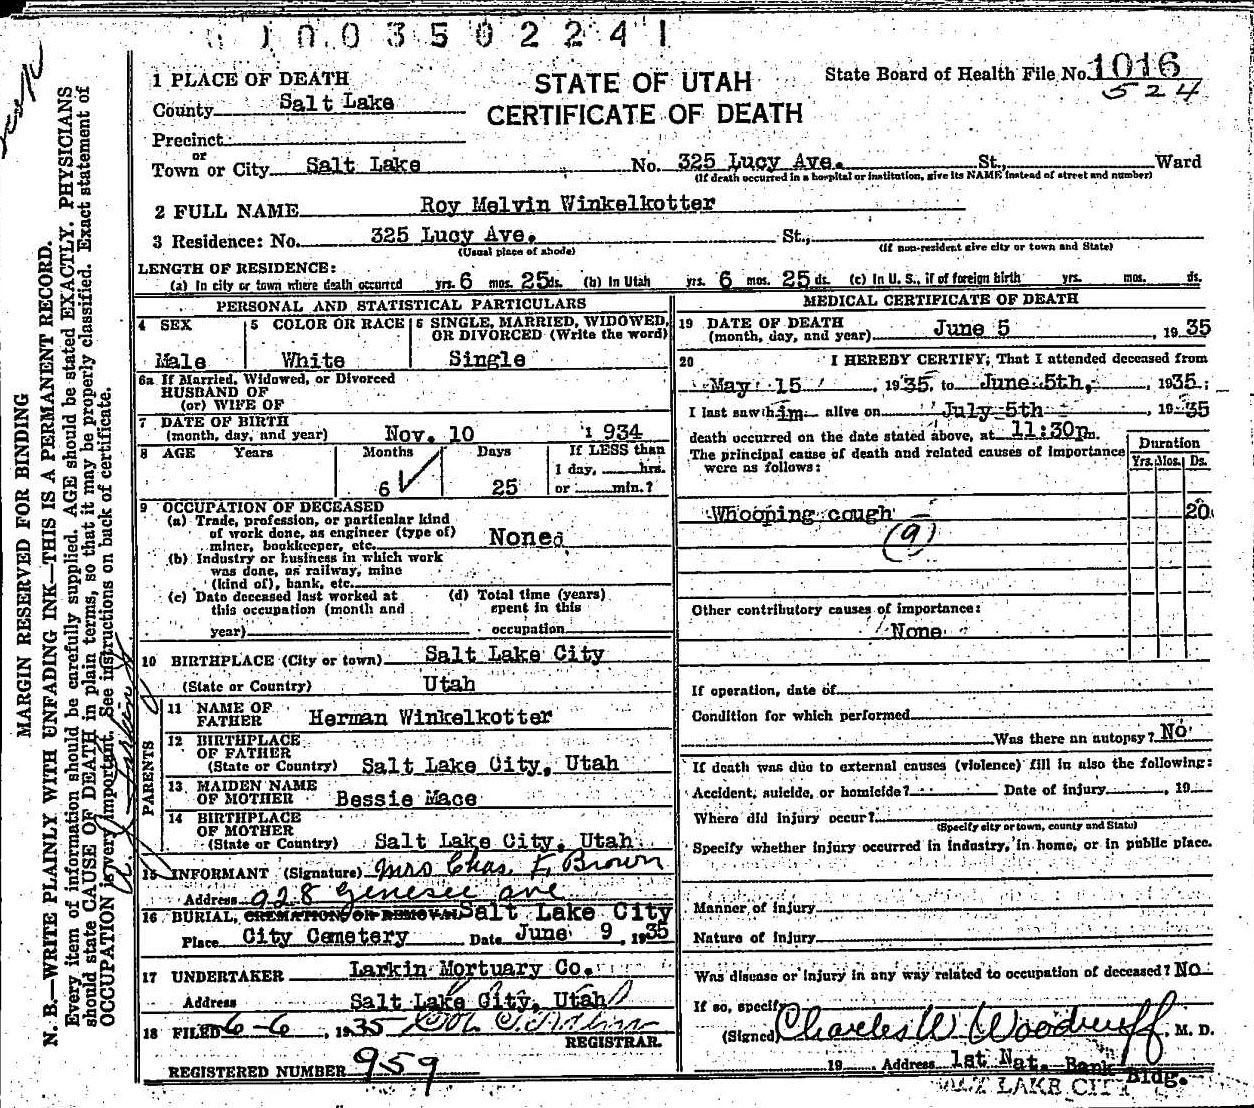 1003502241
STATE OF UTAH
CERTIFICATE OF DEATH
State Board of Health File No. 1016
524
1 PLACE OF DEATH
County Salt Lake
Precinct
or
Town or City Salt Lake No. 325 Lucy Ave. St., Ward
(If death occurred in a hospital or institution, give its NAME instead of street and number)
2 FULL NAME Roy Melvin Winkelkotter
3 Residence: No. 325 Lucy Ave. St.,
(Usual place of abode) (If non-resident give city or town and State)
LENGTH OF RESIDENCE:
(a) In city or town where death occurred yrs. 6 mos. 25 ds. (b) In Utah yrs. 6 mos. 25 ds. (c) In U. S., if of foreign birth yrs. mos. ds.
PERSONAL AND STATISTICAL PARTICULARS
4 SEX
Male
5 COLOR OR RACE
White
6 SINGLE, MARRIED, WIDOWED,
OR DIVORCED (Write the word)
Single
6a If Married, Widowed, or Divorced
HUSBAND OF
(or) WIFE OF
7 DATE OF BIRTH
(month, day, and year) Nov. 10 1934
8 AGE Years Months Days If LESS than
1 day, hrs.
6 25 or min.?
9 OCCUPATION OF DECEASED
(a) Trade, profession, or particular kind
of work done, as engineer (type of)
miner, bookkeeper, etc. None
(b) Industry or business in which work
was done, as railway, mine
(kind of), bank, etc.
(c) Date deceased last worked at
this occupation (month and
year)
(d) Total time (years)
spent in this
occupation
10 BIRTHPLACE (City or town) Salt Lake City
(State or Country) Utah
PARENTS
11 NAME OF
FATHER Herman Winkelkotter
12 BIRTHPLACE
OF FATHER
(State or Country) Salt Lake City, Utah
13 MAIDEN NAME
OF MOTHER Bessie Mace
14 BIRTHPLACE
OF MOTHER
(State or Country) Salt Lake City, Utah
15 INFORMANT (Signature) Mrs Chas. F. Brown
Address 928 Genesee Ave
16 BURIAL, CREMATION, OR REMOVAL Salt Lake City
Place City Cemetery Date June 9, 1935
17 UNDERTAKER Larkin Mortuary Co.
Address Salt Lake City, Utah
18 FILED 6-6, 1935
REGISTRAR.
REGISTERED NUMBER 959
MEDICAL CERTIFICATE OF DEATH
19 DATE OF DEATH
(month, day, and year) June 5 1935
20 I HEREBY CERTIFY, That I attended deceased from
May 15, 1935, to June 5th, 1935;
I last saw him alive on July 5th, 1935
death occurred on the date stated above, at 11:30p m.
The principal cause of death and related causes of importance
were as follows:
Duration
Yrs. Mos. Ds.
Whooping cough 20
(9)
Other contributory causes of importance:
None
If operation, date of
Condition for which performed
Was there an autopsy? No
If death was due to external causes (violence) fill in also the following:
Accident, suicide, or homicide? Date of injury , 19
Where did injury occur?
(Specify city or town, county and State)
Specify whether injury occurred in industry, in home, or in public place.
Manner of injury
Nature of injury
Was disease or injury in any way related to occupation of deceased? No
If so, specify
(Signed) Charles W. Woodruff, M. D.
19 Address 1st Nat. Bank Bldg.
SALT LAKE CITY
MARGIN RESERVED FOR BINDING
N. B.—WRITE PLAINLY WITH UNFADING INK—THIS IS A PERMANENT RECORD.
Every item of information should be carefully supplied. AGE should be stated EXACTLY. PHYSICIANS
should state CAUSE OF DEATH in plain terms, so that it may be properly classified. Exact statement of
OCCUPATION is very important. See instructions on back of certificate.